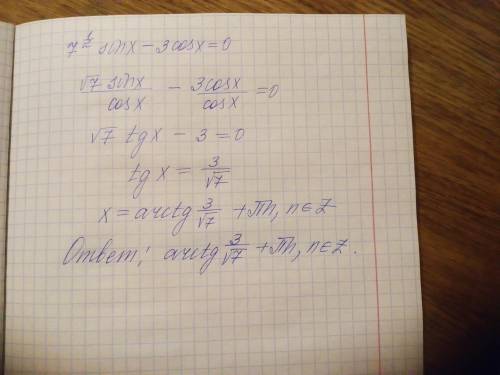 7^{1/2} sinx - 3cosx = 0
\frac{√7 sinx}{cosx} - \frac{3cosx}{cosx} = 0
√7 tgx - 3 = 0
tgx = \frac{3}{√7}
x = arctg \frac{3}{√7} + πn, n∈Z
Ответ: arctg \frac{3}{√7} + πn, n∈Z.